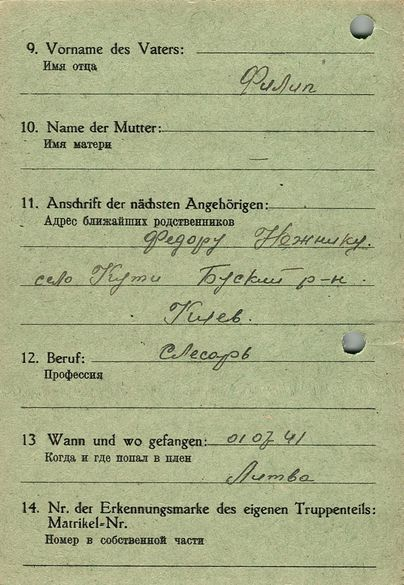 9. Vorname des Vaters:
Имя отца
Филип
10. Name der Mutter:
Имя матери
—
11. Anschrift der nächsten Angehörigen:
Адрес ближайших родственников
Федору Нежнику.
село Кути Буский р-н.
Киев.
12. Beruf: слесарь
Профессия
13 Wann und wo gefangen: 01 07 41
Когда и где попал в плен
Литва
14. Nr. der Erkennungsmarke des eigenen Truppenteils:
Matrikel-Nr.
Номер в собственной части